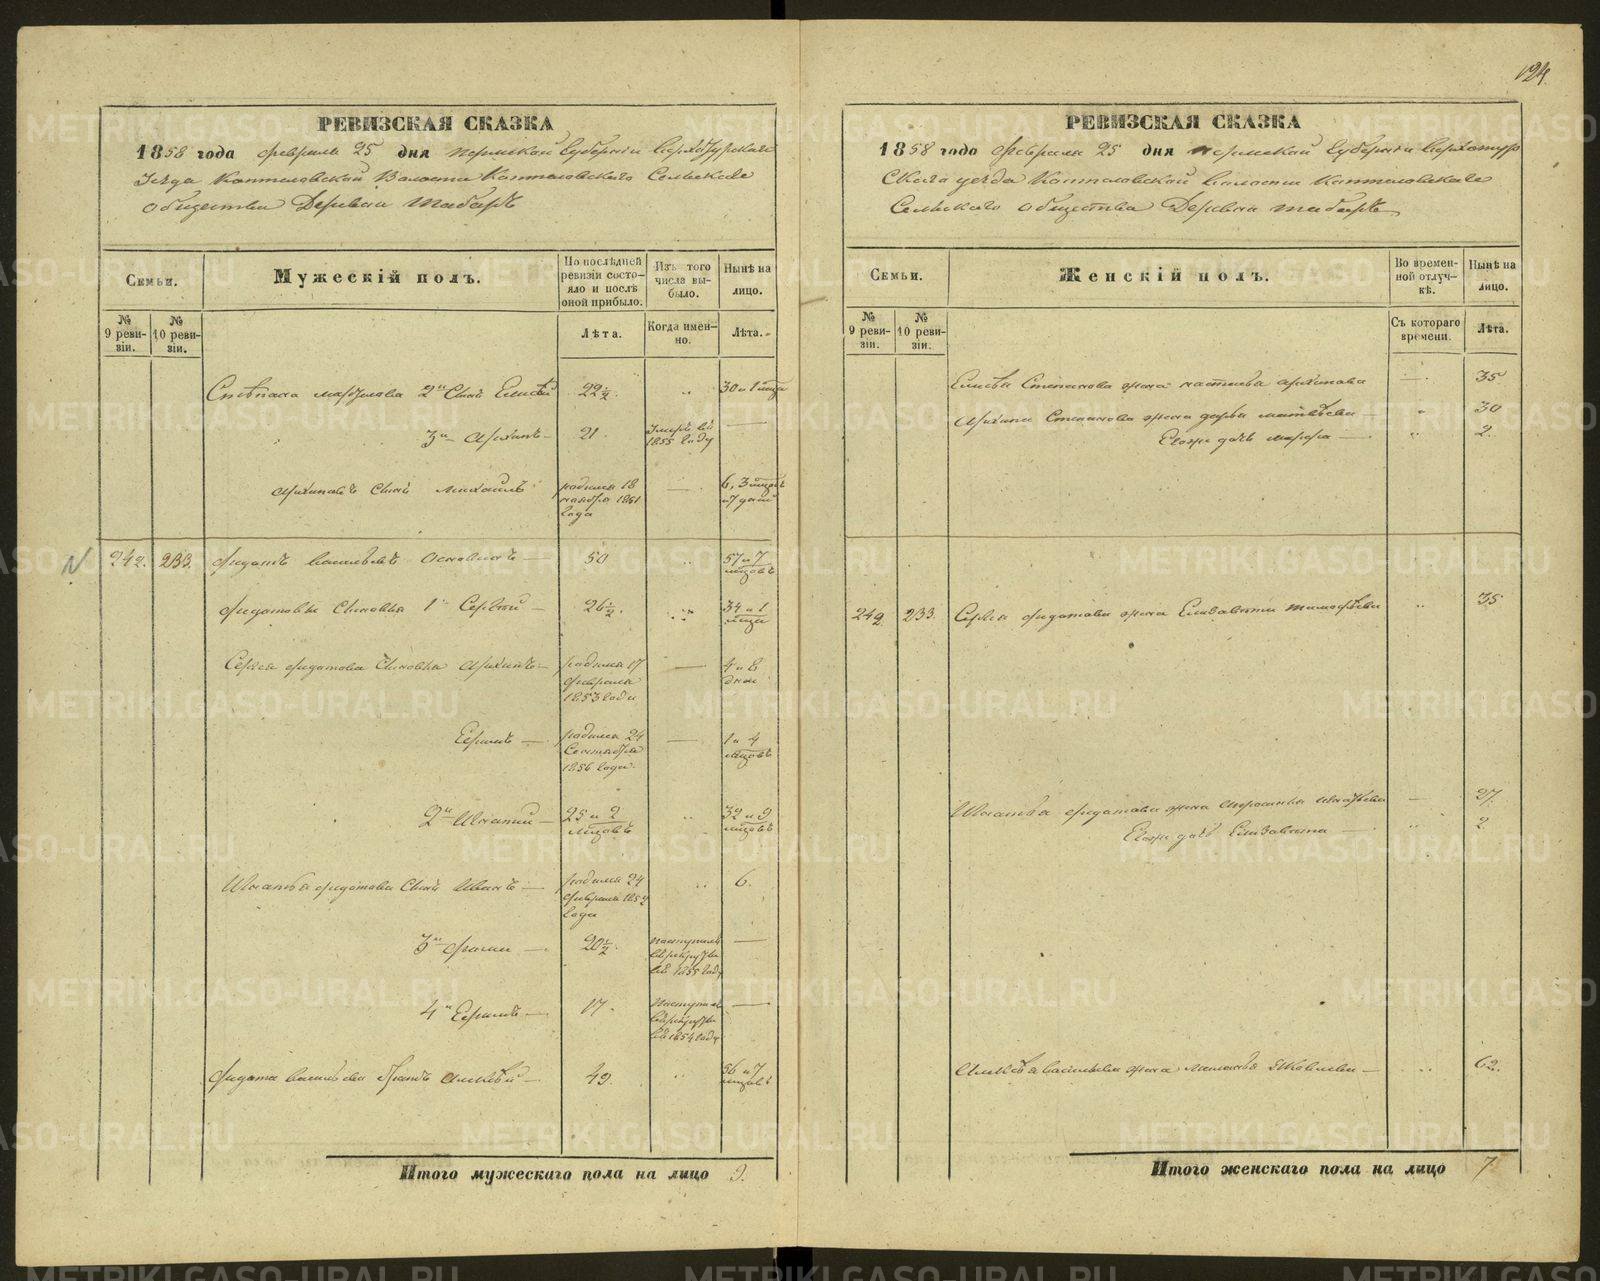 124
РЕВИЗСКАЯ СКАЗКА
1858 года февраля 25 дня Пермской Губернии Верхотурскаго
Уезда Коптеловской Волости Коптеловскаго Сельскаго
общества Деревни Таборъ
Семьи.
Мужескій полъ.
По послѣдней ревизіи состояло и послѣ оной прибыло.
Изъ того числа выбыло.
Нынѣ на лицо.
№ 9 ревизіи.
№ 10 ревизіи.
Лѣта.
Когда именно.
Лѣта.
Степана 2й Сынъ Елисѣй 22½ 30 и 1
3й Архипъ 21. Умеръ въ 1855 году —
Архиповъ Сынъ Михаилъ родился 18 ноября 1851 года — 6, 3 и 7 дней
242. 233. Филатъ Васильевъ 50 57 и 7
Филатовы Сыновья 1й Сергѣй — 26½. 34 и 1
Сергѣя Филатова Сыновья Архипъ — родился 17 февраля 1853 года — 4 и 8 дней
Ефимъ — родился 24 Сентября 1856 года — 1 и 4
2й Игнатій — 25 и 2 32 и 9
Игнатья Филатова Сынъ Иванъ — родился 24 февраля 1852 года 6.
3й — 20½. поступилъ въ рекруты въ 1855 году —
4й Ефимъ — 17. поступилъ въ рекруты въ 1854 году —
Филата Васильева братъ Алексѣй — 49. 56 и 7
Итого мужескаго пола на лицо 9.
РЕВИЗСКАЯ СКАЗКА
1858 года февраля 25 дня Пермской Губернии Верхотур
скаго уезда Коптеловской Волости Коптеловскаго
Сельскаго общества Деревни Таборъ
Семьи.
Женскій полъ.
Во временной отлучкѣ.
Нынѣ на лицо.
№ 9 ревизіи.
№ 10 ревизіи.
Съ котораго времени.
Лѣта.
Елисѣя Степанова жена Настасья Архипова — 35
Архипа Степанова жена Дарья Матвѣева — 30
Егожъ дочь Марфа — 2.
242. 233. Сергѣя Филатова жена Елизавета Тимофѣева 35
Игнатья Филатова жена Игнатьева — 27.
Егожъ дочь Елизавета — 2
Алексѣя Васильева жена Яковлева — 62.
Итого женскаго пола на лицо 7
METRIKI.GASO-URAL.RU